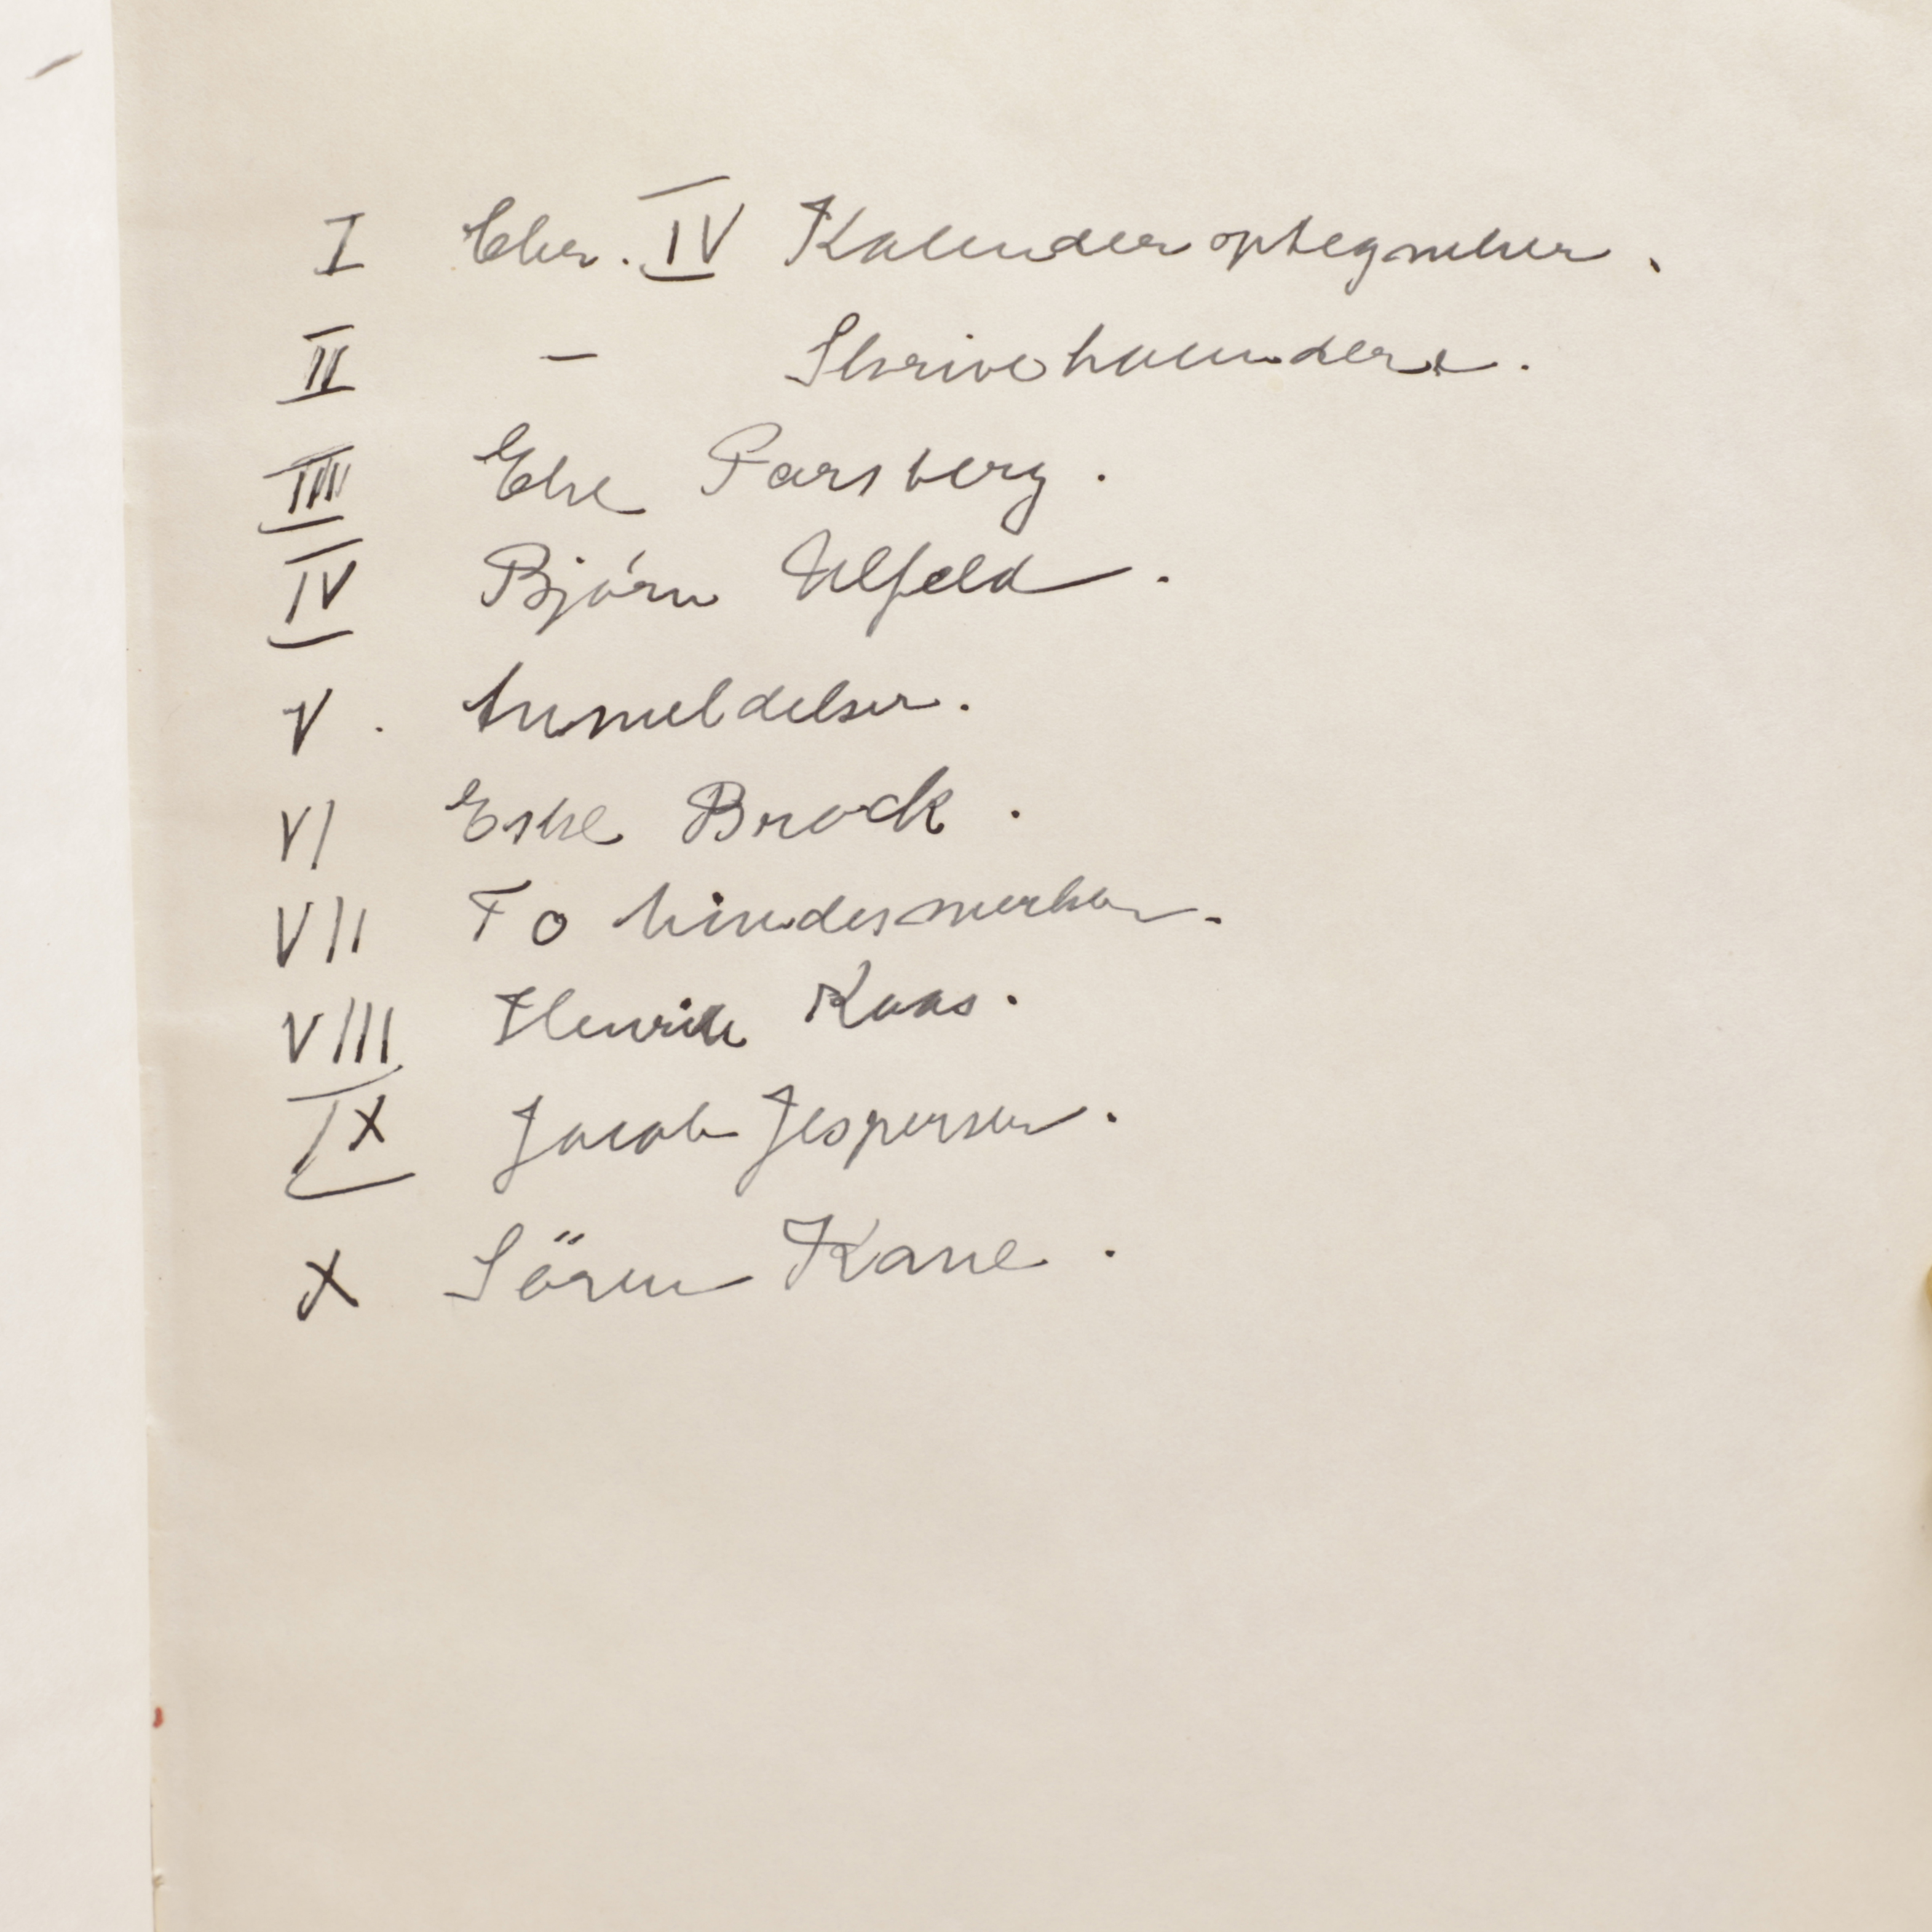 I Chr. IV Kalenderoptegnelser.
II – Skrivekalendere.
III Else Parsberg.
IV Bjórn Ulfeld.
V. Anmeldelser.
VI Eske Brock.
VII To mindesmerker.
VIII Henrik Kaas.
IX Jacob Jespersen.
X Sören Kane.